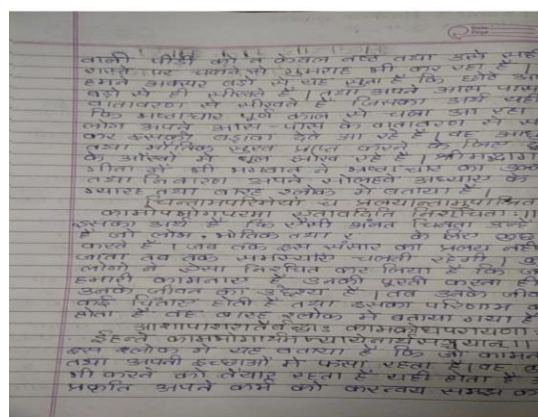 वाली पीढ़ी को न केवल नष्ट तथा उसे सही
रास्ते पर चलाने से गुमराह भी कर रहा है।
हमने अक्सर बड़ो से यह सुना है कि छोटे अ
बड़ो से ही सीखते है। तथा अपने आस पास
वातावरण से सीखते है जिसका अर्थ यही
कि भ्रष्टाचार पूर्ण काल से चला आ रहा
लोग अपने आस-पास के वातावरण से
कर इसको बढ़ावा देते आ रहे है। वह आध
तथा भौतिक सुख प्राप्त करने के लिए
के आँखो में धूल झोंक रहे है। श्रीमद्भाग
गीता में श्री भगवान ने भ्रष्टाचार का
तथा निवारण अपने सोलहवे अध्याय के
ग्यारह तथा बारह श्लोक में बताया है।
चिन्तामपरिमेयां च प्रलयान्तामुपाश्रित
कामोपभोगपरमा एतावदिति निश्चिताः॥
इसका अर्थ है कि ऐसी अनंत चिन्ता उन्हे
है जो लोग भौतिक तथा के लिए
करते है। जब तक इस संसार का प्रलय नही
जाता तब तक समस्याएँ चलती रहेगी।
लोगो ने ऐसा निश्चित कर लिया है कि ज
हमारी कामनाए है उनकी पूरती करना ही
उनके जीवन का उद्देश्य है। तब उनके जीव
कई चिंताए होती है तथा इसका परिणाम
होता है वह बारह श्लोक में बताया गया है
आशापाशशतैर्बद्धाः कामक्रोधपरायणा।
ईहन्ते कामभोगार्थमन्यायेनार्थसञ्चयान॥
इस श्लोक में यह बताया है कि जो कामन
तथा अपनी इच्छाओ में फसा रहता है। वह
भी करने को तैयार रहता है यही होता है
प्रकृति अपने कर्म को करत्वय समझ क